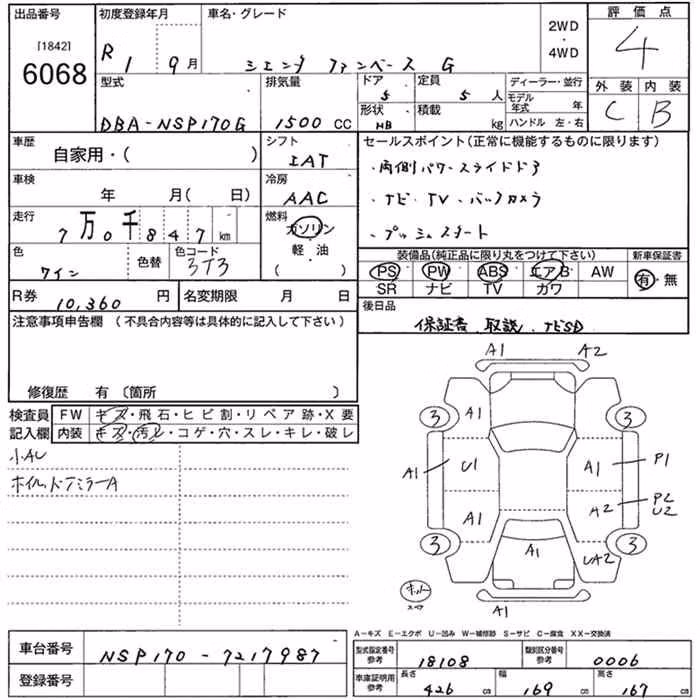 出品番号 初度登録年月 車名・グレード 評価点
[1842]
6068
R1 9月 シエンタ ファンベース G 2WD・4WD 4
型式 排気量 ドア 定員 ディーラー・並行 外装 内装
5 5人 モデル年式 年
DBA-NSP170G 1500cc 形状 HB 積載 kg ハンドル 左・右 C B
車歴 シフト セールスポイント(正常に機能するものに限ります)
自家用・( ) IAT ・両側パワースライドドア
車検 冷房
年 月(日) AAC ・ナビ・TV・バックカメラ
走行 燃料
7万0千847km ガソリン・軽油( ) ・プッシュスタート
色 色替 色コード 装備品(純正品に限り丸をつけて下さい) 新車保証書
ワイン 3T3 PS PW ABS エアB AW 有・無
SR ナビ TV カワ
R券 10,360円 名変期限 月 日 後日品
注意事項申告欄(不具合内容等は具体的に記入して下さい) 保証書、取説、ナビSD
修復歴 有〔箇所 〕
検査員記入欄 FW キズ・飛石・ヒビ割・リペア跡・X要
内装 キズ・汚レ・コゲ・穴・スレ・キレ・破レ
小AU
A1 A2
3 A1 3
A1 U1 A1 P1
A1 A2 P2 U2
3 A1 UA2 3
A1
A-キズ E-エクボ U-凹み W-補修跡 S-サビ C-腐食 XX-交換済
車台番号 NSP170-7217987
登録番号
型式指定番号 参考 18108 類別区分番号 参考 0006
車庫証明用 参考 長さ 426cm 幅 169cm 高さ 167cm